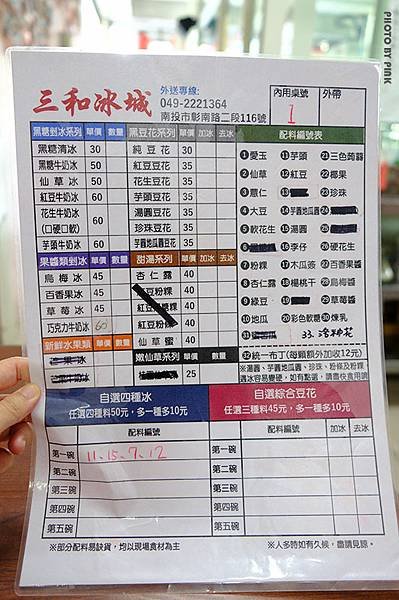 PHOTO BY PINK
三和冰城
外送專線:
049-2221364
南投市彰南路二段116號
內用桌號 外帶
1
黑糖剉冰系列 單價 數量
黑糖清冰 30
黑糖牛奶冰 50
仙草冰 50
紅豆牛奶冰 60
花生牛奶冰
(口硬口軟) 60
芋頭牛奶冰
果醬類剉冰 單價 數量
烏梅冰 45
百香果冰 45
草莓冰 45
巧克力牛奶冰 60
新鮮水果類 單價 數量
黑豆花系列 單價 加冰 去冰
純豆花 35
紅豆豆花 35
花生豆花 35
芋頭豆花 35
湯圓豆花 35
珍珠豆花 35
芋圓地瓜圓豆花 35
甜湯系列 單價 加冰 去冰
杏仁露 40
紅豆粉粿 40
40
紅豆粉 40
仙草蜜 40
嫩仙草系列 單價 數量
25
配料編號表
1愛玉 11芋頭 21三色蒟蒻
2仙草 12紅豆 22椰果
3薏仁 13 23珍珠
4大豆 14芋圓地瓜圓 24
5軟花生 15湯圓 25
6 16李仔 26硬花生
7粉粿 17木瓜簽 27百香果醬
8杏仁露 18楊桃干 28烏梅醬
9綠豆 19 29草莓醬
10地瓜 20彩色軟糖 30煉乳
31 33.
32統一布丁(每顆額外加收12元)
※湯圓、芋圓地瓜圓、珍珠、粉條及粉粿
遇冰容易變硬，如有點選，請盡快食用唷
自選四種冰
任選四種50元，多一種多10元
自選綜合豆花
任選三種料45元，多一種多10元
配料編號 配料編號 加冰 去冰
第一碗 11、15、7、12 第一碗
第二碗 第二碗
第三碗 第三碗
第四碗 第四碗
第五碗 第五碗
※部分配料易缺貨，均以現場食材為主
※人多時如有久候，盡請見諒。